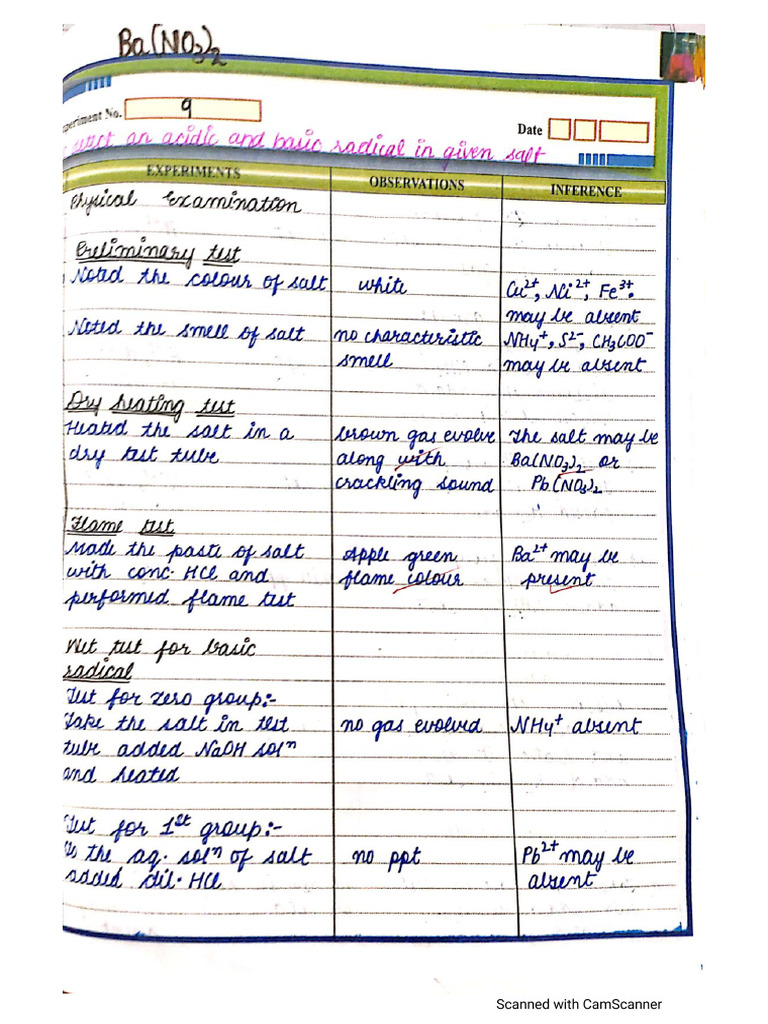 Ba(NO3)2
Experiment No. 9
Date
detect an acidic and basic radical in given salt
EXPERIMENTS OBSERVATIONS INFERENCE
Physical Examination
Preliminary test
Noted the colour of salt white Cu²⁺, Ni²⁺, Fe³⁺
may be absent
Noted the smell of salt no characteristic NH4⁺, S²⁻, CH3COO⁻
smell may be absent
Dry heating test
Heated the salt in a brown gas evolve The salt may be
dry test tube along with Ba(NO3)2 or
crackling sound Pb(NO3)2
Flame test
Made the paste of salt Apple green Ba²⁺ may be
with conc. HCl and flame colour present
performed flame test
Wet test for basic
radical
Test for zero group:-
Take the salt in test no gas evolved NH4⁺ absent
tube added NaOH solⁿ
and heated
Test for 1st group:-
To the aq. solⁿ of salt no ppt Pb²⁺ may be
added dil. HCl absent
Scanned with CamScanner